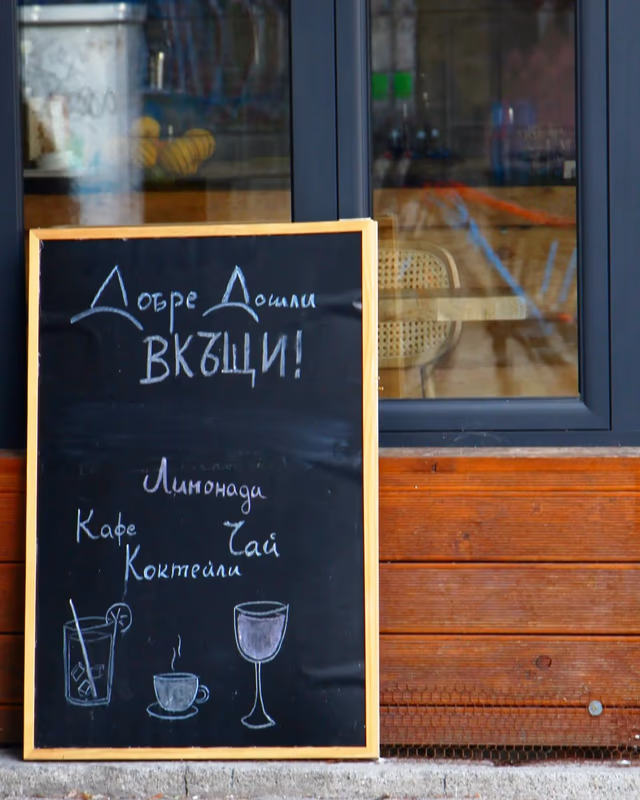 Добре Дошли
ВКЪЩИ!
Лимонади
Кафе
Чай
Коктейли